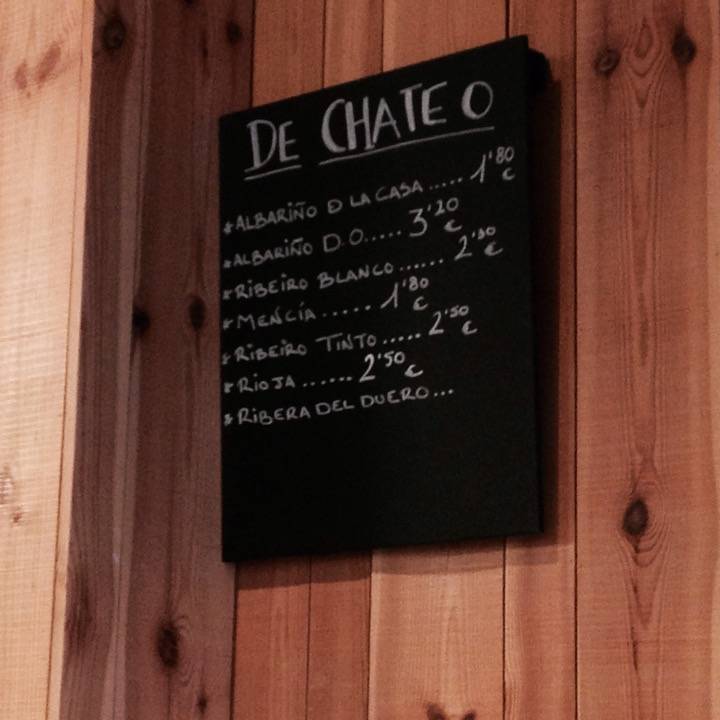 DE CHATEO
*ALBARIÑO D LA CASA ..... 1'80 €
*ALBARIÑO D.O..... 3'20 €
*RIBEIRO BLANCO...... 2'50 €
*MENCÍA...... 1'80 €
*RIBEIRO TINTO ..... 2'50 €
*RIOJA ...... 2'50 €
*RIBERA DEL DUERO...